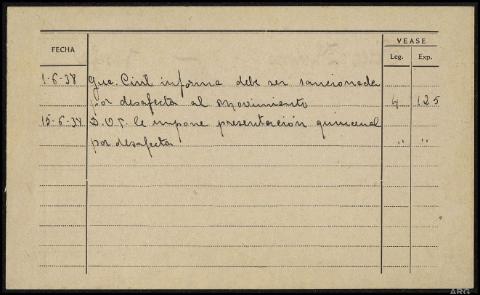 VEASE
FECHA Leg. Exp.
1-6-38 Gua. Civil informa debe ser sancionada
por desafecta al Movimiento 4 125
15-6-38 D.O.P. le impone presentación quincenal
por desafecta " "
ARG